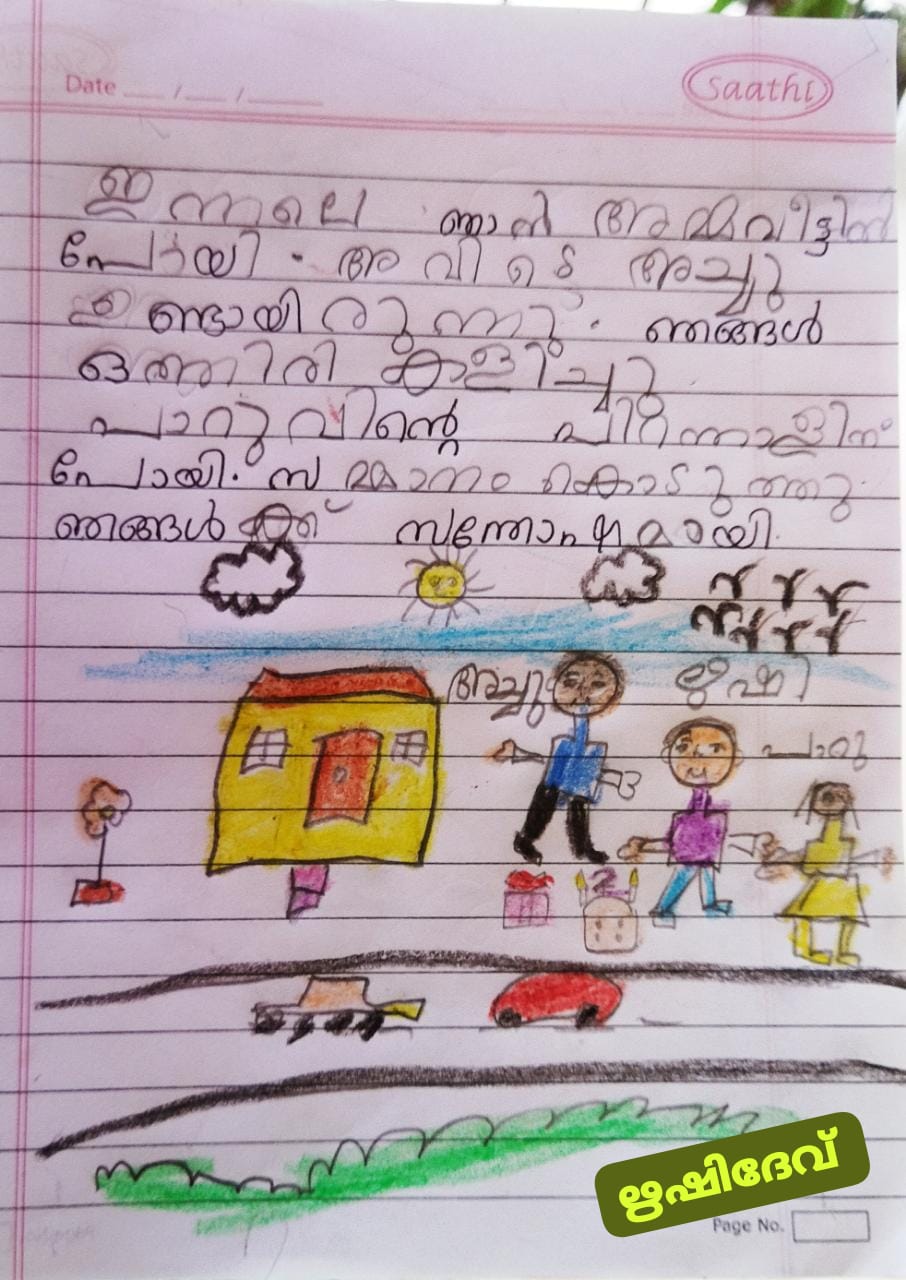 Date __ / __ / ____
Saathi
ഇന്നലെ ഞാൻ അമ്മവീട്ടിൽ
പോയി. അവിടെ അച്ചു
ഉണ്ടായിരുന്നു. ഞങ്ങൾ
ഒത്തിരി കളിച്ചു
പാറുവിന്റെ പിറന്നാളിന്
പോയി. സമ്മാനം കൊടുത്തു.
ഞങ്ങൾക്ക് സന്തോഷമായി.
അച്ചു ഋഷി
പാറു
2
ഋഷിദേവ്
Page No.